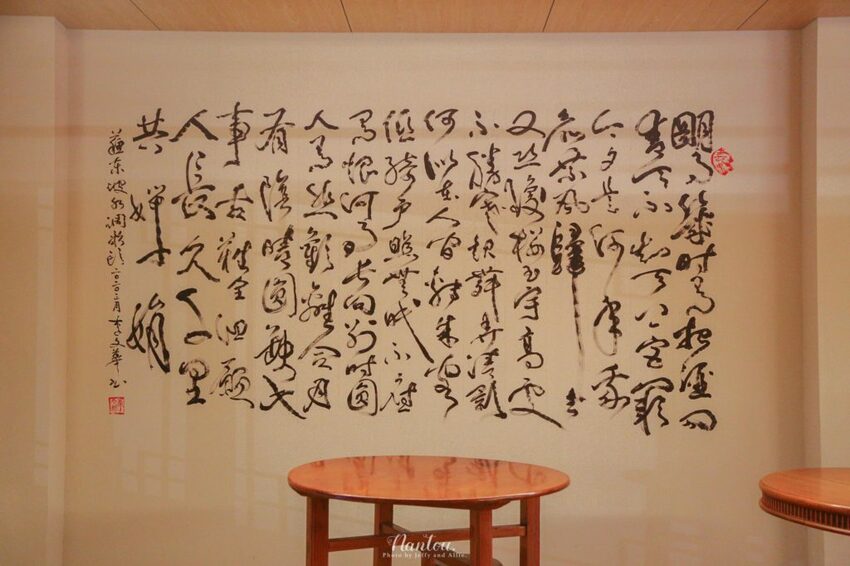 明月幾時有把酒問
青天不知天上宮闕
今夕是何年我
欲乘風歸去
又恐瓊樓玉宇高處
不勝寒起舞弄清影
何似在人間轉朱閣
低綺戶照無眠不應
有恨何事長向別時圓
人有悲歡離合月
有陰晴圓缺此
事古難全但願
人長久千里
共嬋娟
蘇東坡水調歌頭 李文華書
Nantou.
Photo by Jeffy and Allie.